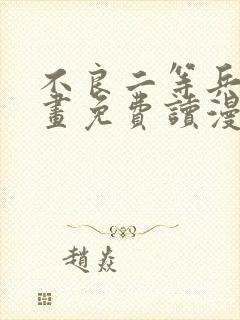 不良二等兵
畫免費讀漫
趙焱